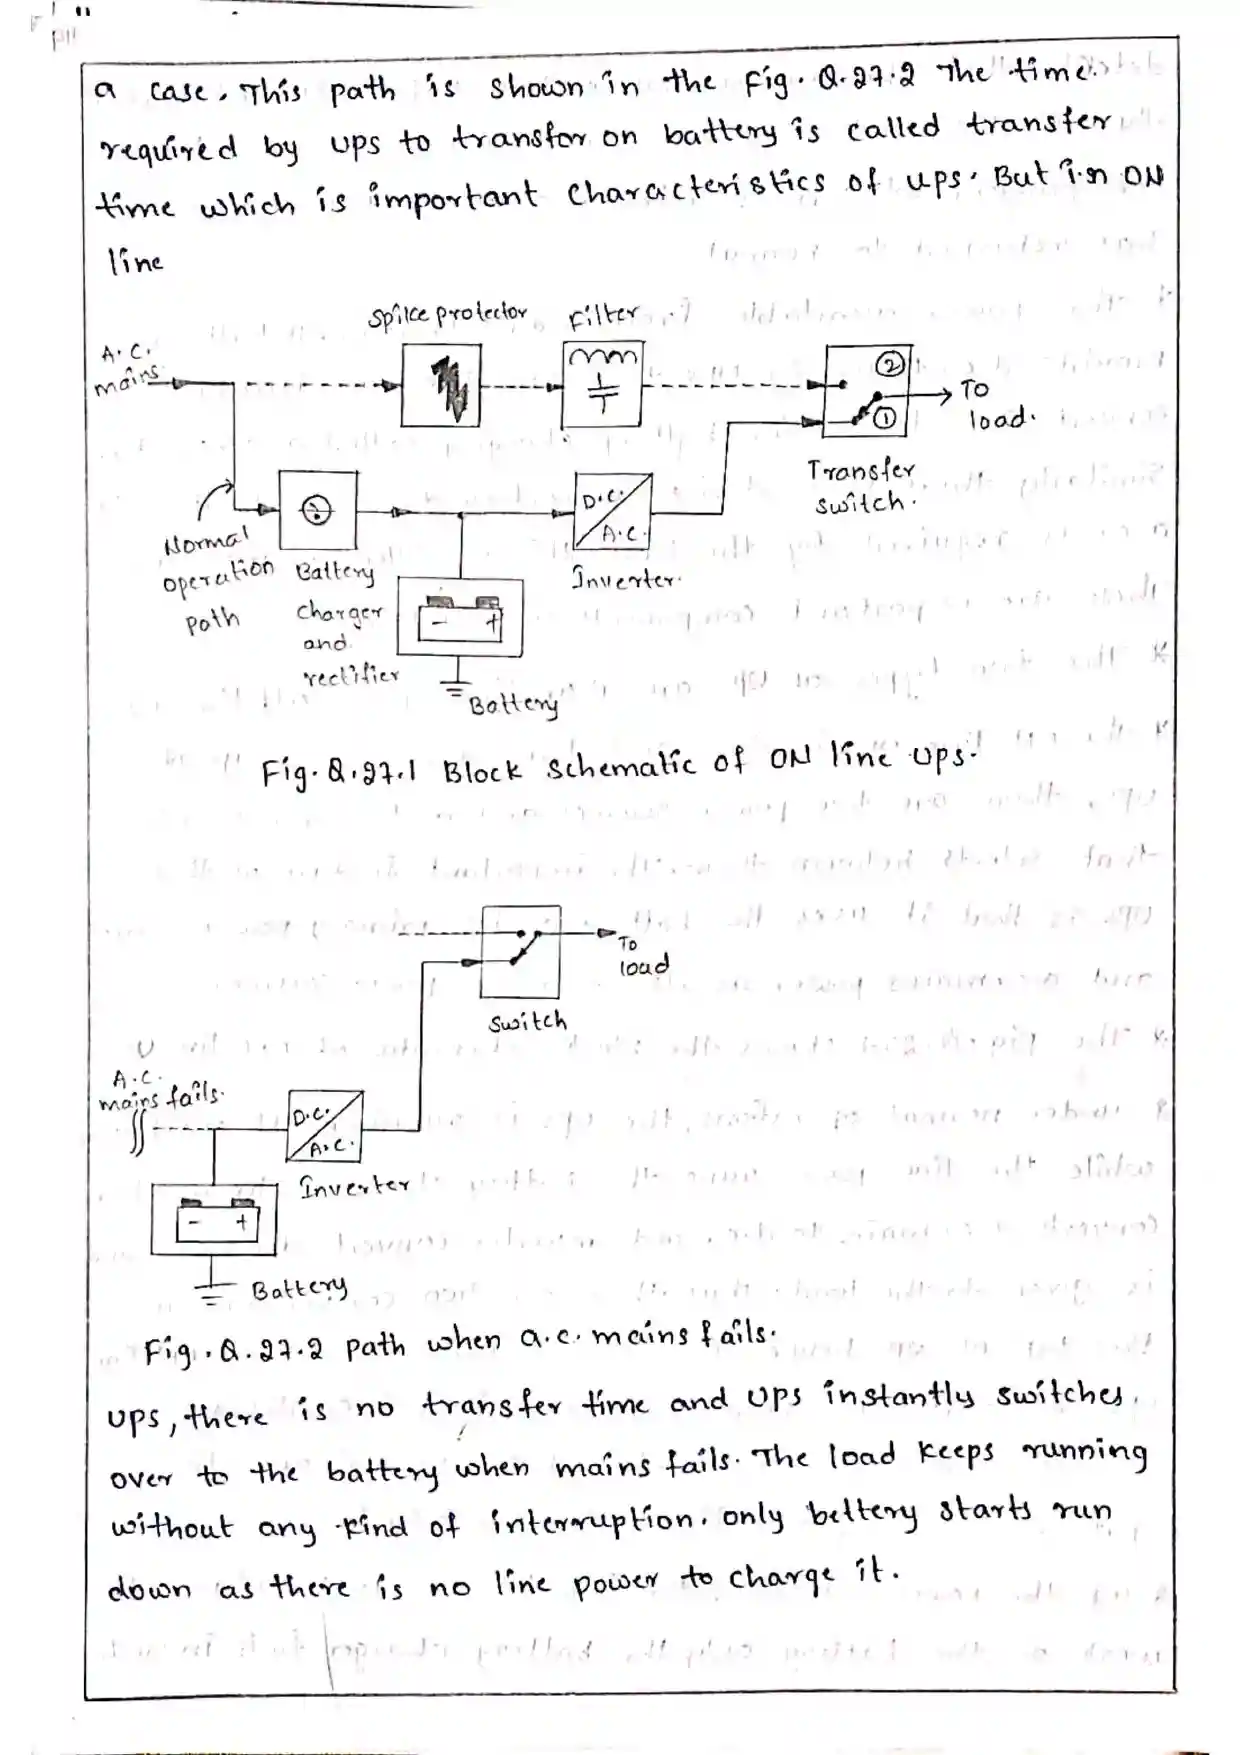 a case. This path is shown in the Fig. Q.27.2 The time
required by UPS to transfor on battery is called transfer
time which is important characteristics of ups. But in ON
line
Spilce protector
Filter
A.C.
mains
②
①
To
load.
Transfer
switch.
Normal
operation
path
Battery
charger
and
rectifier
D.C.
A.C.
Inverter.
- +
Battery
Fig. Q.27.1 Block Schematic of ON line ups.
To
load
Switch
A.C.
mains fails.
D.C.
A.C.
Inverter
- +
Battery
Fig. Q.27.2 path when a.c. mains fails.
UPS, there is no transfer time and UPS instantly switches
over to the battery when mains fails. The load keeps running
without any kind of interruption. only bettery starts run
down as there is no line power to charge it.